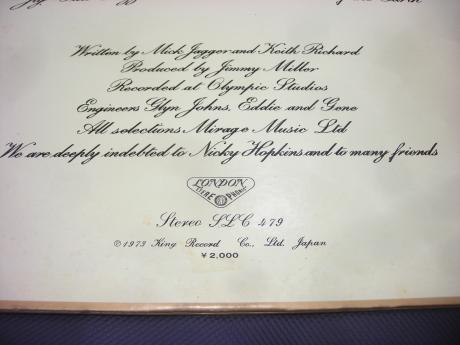 Written by Mick Jagger and Keith Richard
Produced by Jimmy Miller
Recorded at Olympic Studios
Engineers Glyn Johns, Eddie and Gene
All selections Mirage Music Ltd
We are deeply indebted to Nicky Hopkins and to many friends
LONDON
Stereo SLC 479
©1973 King Record Co., Ltd. Japan
¥2,000